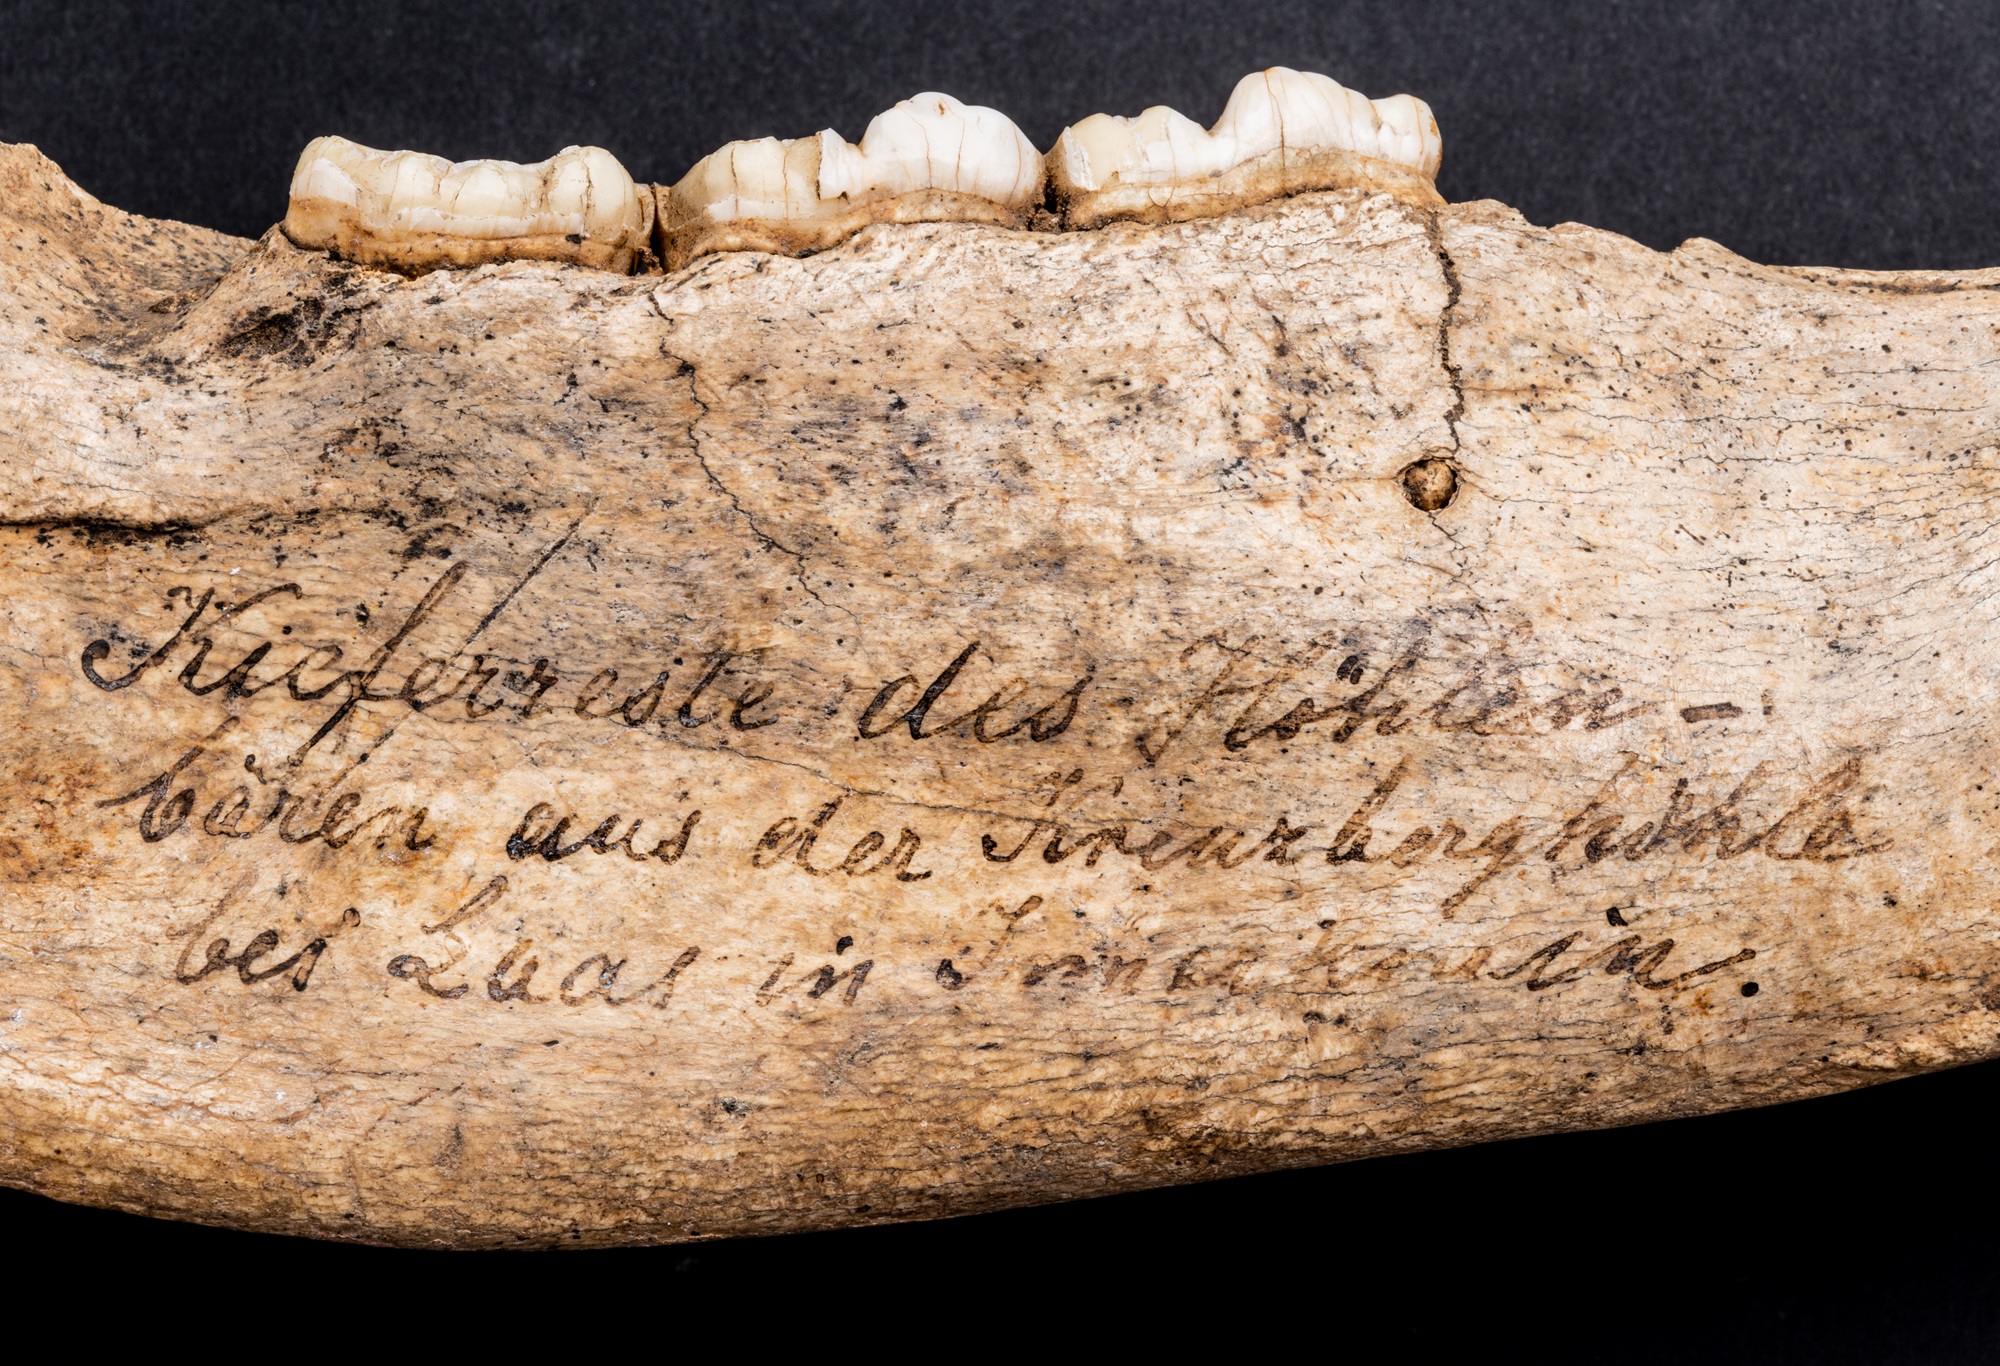 Kieferreste des Höhlen-
bären aus der Kreuzberghöhle
bei Laas in Innerkrain.